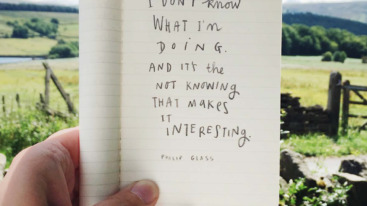 I DON'T KNOW
WHAT I'M
DOING.
AND IT'S the
NOT KNOWING
THAT MAKES
IT
INTERESTING.
PHILIP GLASS